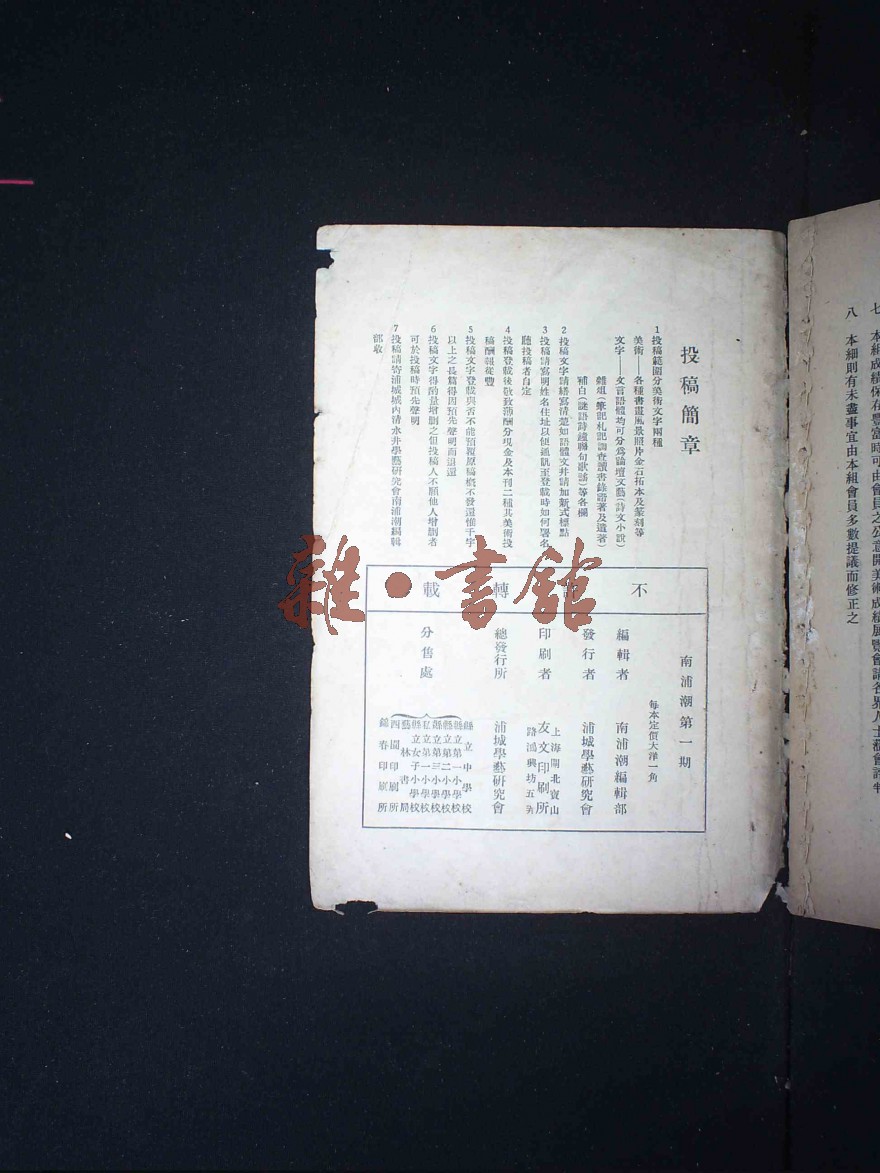 七 本組成績保存豐富時可由會員之公意開美術成績展覽會請各界人士
八 本細則有未盡事宜由本組會員多數提議而修正之
投稿簡章
1投稿範圍分美術文字兩種
美術——各種書畫風景照片金石拓本及篆刻等
文字——文言語體均可分為論壇文藝(詩文小說)
雜俎(筆記札記調查讀書錄諧著及遺著)
補白(謎語詩鐘聯句歌謠)等各欄
2投稿文字請繕寫清楚如語體文并請加新式標點
3投稿請寫明姓名住址以便通訊至登載時如何署名
聽投稿者自定
4投稿登載後敬致薄酬分現金及本刊二種其美術投
稿酬報從豐
5投稿文字登載與否不能預覆原稿概不發還惟千字
以上之長篇得因預先聲明而退還
6投稿文字得酌量增刪之但投稿人不願他人增刪者
可於投稿時預先聲明
7投稿請寄浦城城內清水井學藝研究會南浦潮編輯
部收
不許轉載
南浦潮第一期
每本定價大洋一角
編輯者 南浦潮編輯部
發行者 浦城學藝研究會
印刷者 上海閘北寶山路鴻興坊五 友文印刷所
總發行所 浦城學藝研究會
分售處
縣立中學校
縣立第一小學校
縣立第二小學校
縣立第三小學校
私立第一小學校
縣立女子小學校
藝林書局
四開印刷所
錦春印刷所
雜·書館